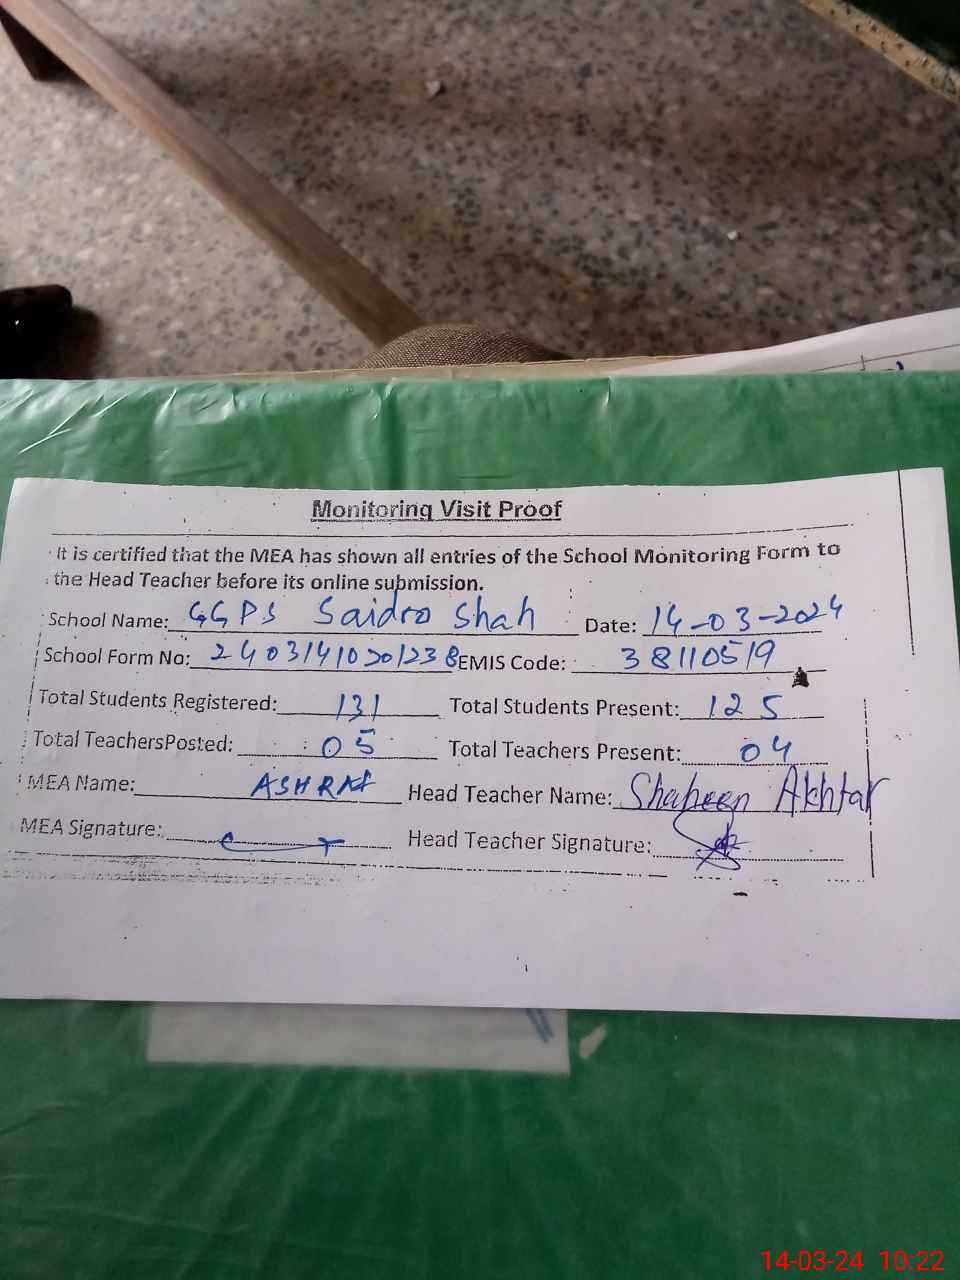 Monitoring Visit Proof
It is certified that the MEA has shown all entries of the School Monitoring Form to
the Head Teacher before its online submission.
School Name: GGPS Saidro Shah Date: 14-03-2024
School Form No: 24031410201238 EMIS Code: 38110519
Total Students Registered: 131 Total Students Present: 125
Total TeachersPosted: 05 Total Teachers Present: 04
MEA Name: ASHRAf Head Teacher Name: Shaheen Akhtar
MEA Signature: Head Teacher Signature:
14-03-24 10:22